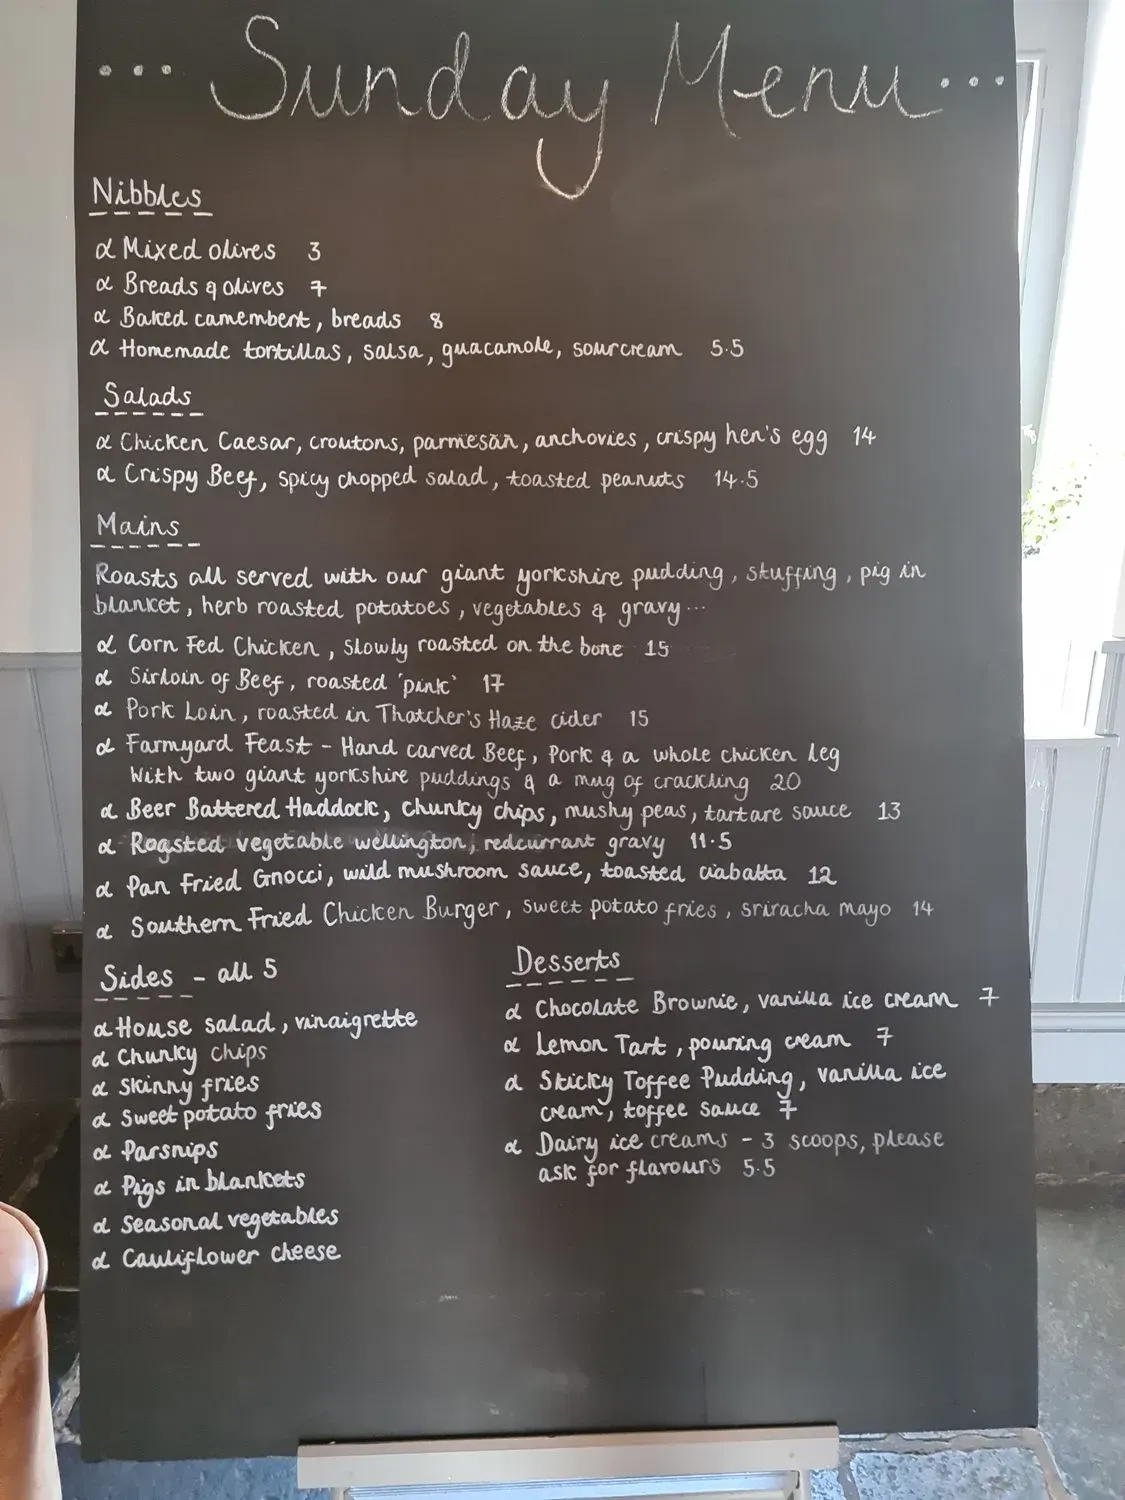 ... Sunday Menu ...
Nibbles
α Mixed olives 3
α Breads & olives 7
α Baked camembert, breads 8
α Homemade tortillas, salsa, guacamole, sourcream 5.5
Salads
α Chicken Caesar, croutons, parmesan, anchovies, crispy hen's egg 14
α Crispy Beef, spicy chopped salad, toasted peanuts 14.5
Mains
Roasts all served with our giant yorkshire pudding, stuffing, pig in
blanket, herb roasted potatoes, vegetables & gravy...
α Corn Fed Chicken, slowly roasted on the bone 15
α Sirloin of Beef, roasted 'pink' 17
α Pork Loin, roasted in Thatcher's Haze cider 15
α Farmyard Feast - Hand carved Beef, Pork & a whole chicken leg
with two giant yorkshire puddings & a mug of crackling 20
α Beer Battered Haddock, chunky chips, mushy peas, tartare sauce 13
α Roasted vegetable wellington, redcurrant gravy 11.5
α Pan Fried Gnocci, wild mushroom sauce, toasted ciabatta 12
α Southern Fried Chicken Burger, sweet potato fries, sriracha mayo 14
Sides - all 5
α House salad, vinaigrette
α Chunky chips
α Skinny fries
α Sweet potato fries
α Parsnips
α Pigs in blankets
α Seasonal vegetables
α Cauliflower cheese
Desserts
α Chocolate Brownie, vanilla ice cream 7
α Lemon Tart, pouring cream 7
α Sticky Toffee Pudding, vanilla ice
cream, toffee sauce 7
α Dairy ice creams - 3 scoops, please
ask for flavours 5.5